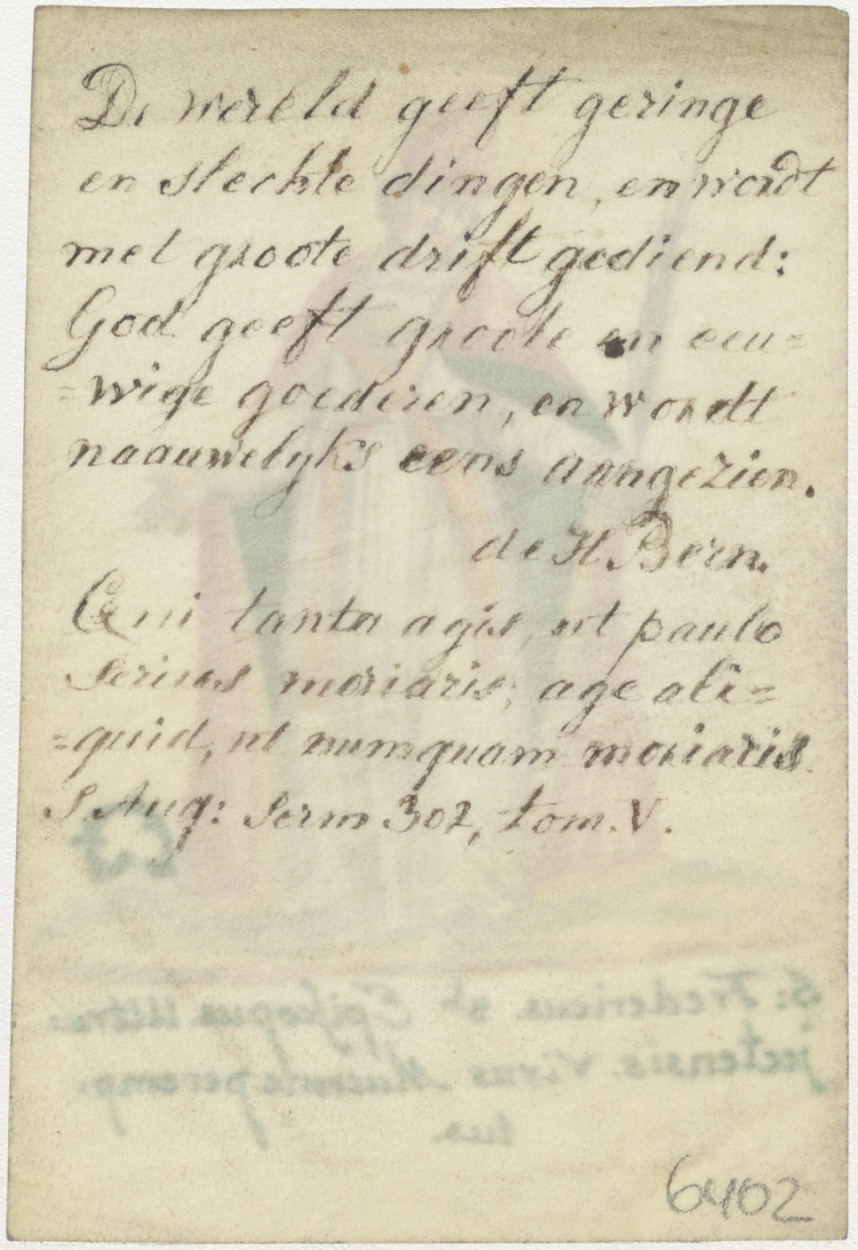 De wereld geeft geringe
en slechte dingen, en wordt
met groote drift gediend:
God geeft groote en eeu=
=wige goederen, en wordt
naauwelyks eens aangezien.
de H. Bern.
Qui tanta agis, ut paulo
serius moriaris, age ali=
=quid, ut numquam moriaris
S Aug: serm 302, tom. V.
S: Fredericus. 8h Episcopus Ultra:
jectensis. Virus
tus.
6402